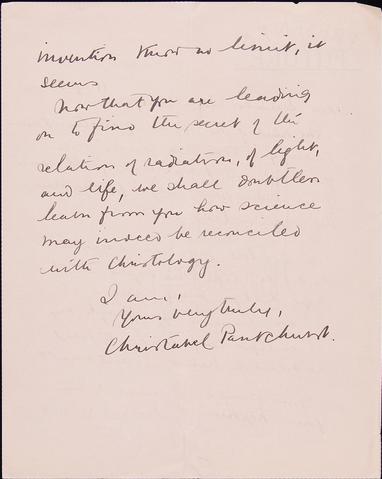 invention know no limit, it
seems
Now that you are leading
on to find the secret of the
relation of radiation, of light,
and life, we shall doubtless
learn from you how science
may indeed be reconciled
with Christology.
I am,
Yours very truly,
Christabel Pankhurst.